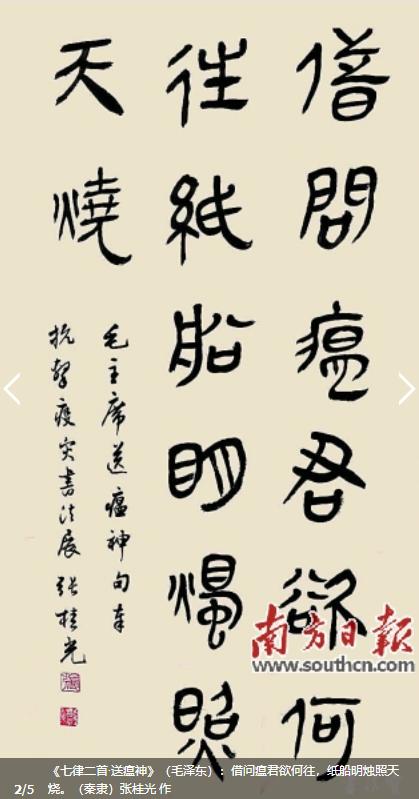 借問瘟君欲何
往紙船明燭照
天燒
毛主席送瘟神句奉
抗擊疫災書法展 張桂光
南方日報
www.southcn.com
《七律二首·送瘟神》（毛泽东）：借问瘟君欲何往，纸船明烛照天
2/5 烧。（秦隶）张桂光 作